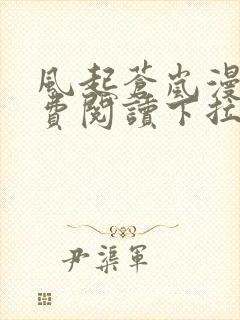 風起蒼嵐漫
費閱讀下拉
尹渠軍